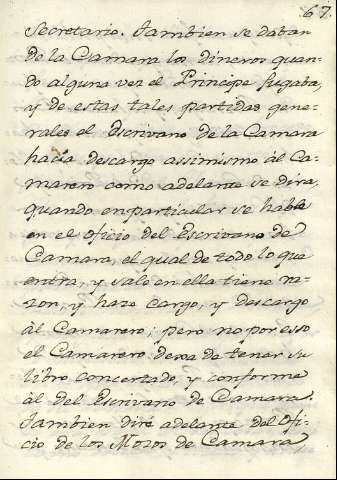 67.
Secretario. Tambien se daban
de la Camara los dineros quan-
do alguna vez el Principe jugaba,
y de estas tales partidas gene-
rales el Escrivano de la Camara
hacia descargo assimismo àl Ca-
marero como adelante se dira,
quando en particular se hable
en el Oficio del Escrivano de
Camara, el qual de todo lo que
entra, y sale en ella tiene ra-
zon, y haze cargo, y descargo
àl Camarero; pero no por esso
el Camarero dexa de tener su
libro concertado, y conforme
àl del Escrivano de Camara.
Tambien dirè adelante del Ofi-
cio de los Mozos de Camara